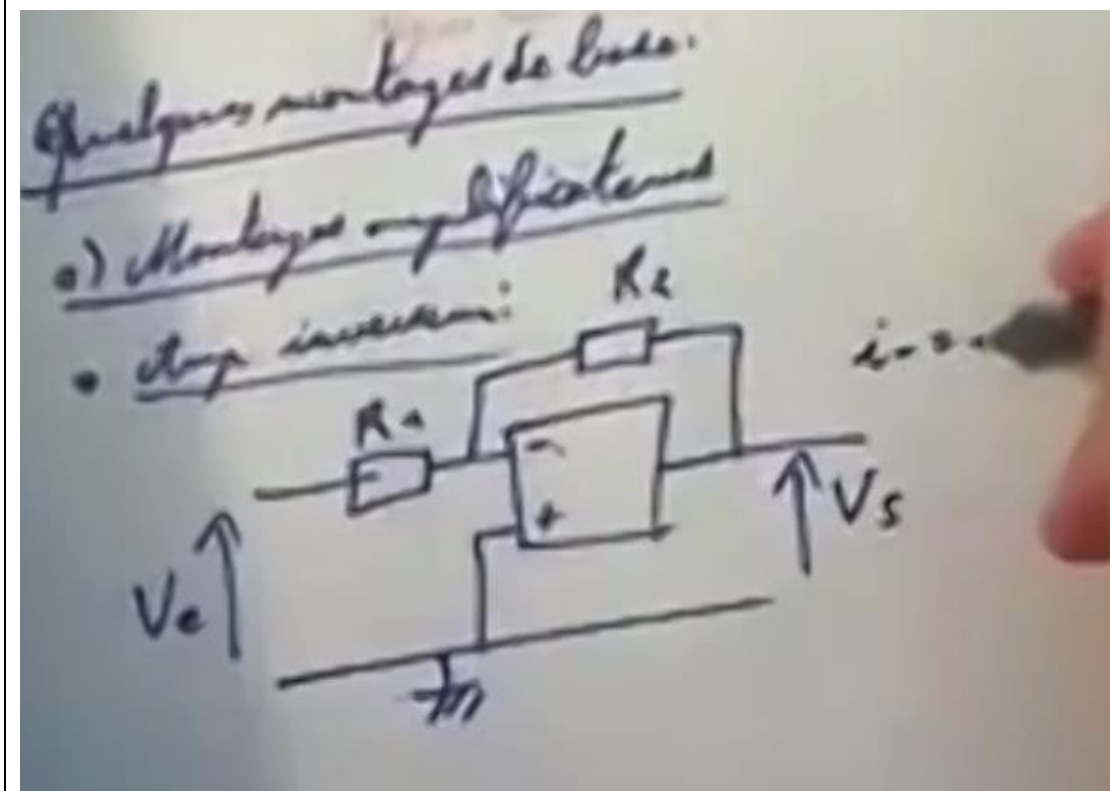 Quelques montages de base.
a) Montages amplificateurs
• Amp inverseur:
R2
R1
-
+
Ve
Vs